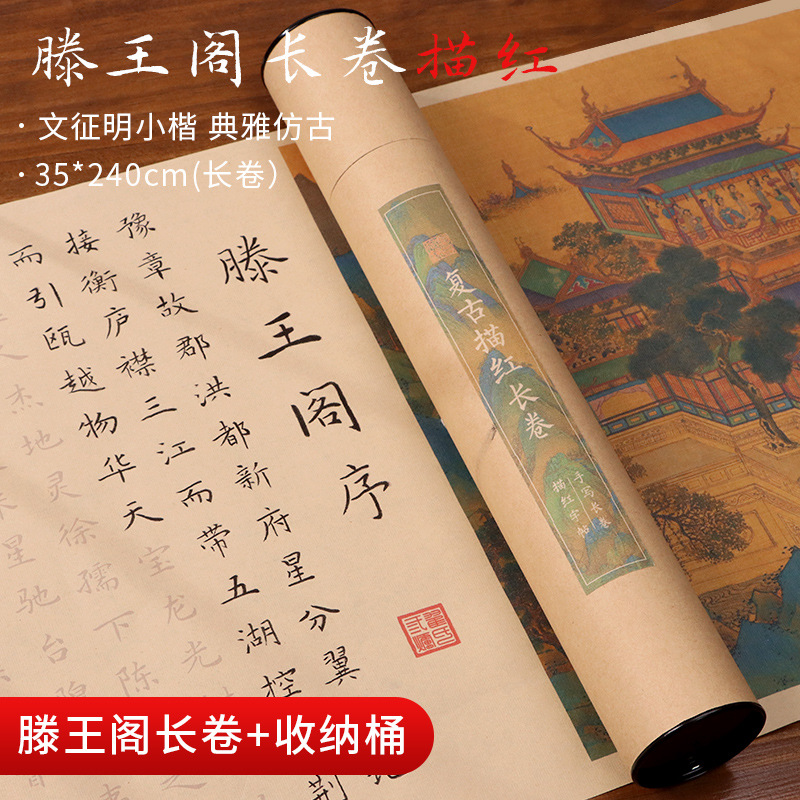 滕王阁长卷描红
·文征明小楷 典雅仿古
·35*240cm(长卷)
滕王阁序
豫章故郡洪都新府星分翼
接衡庐襟三江而带五湖控荆
而引瓯越物华天宝龙光
杰地灵徐孺下陈
采星驰台隍
复古描红长卷
手写长卷
描红字帖
滕王阁长卷+收纳桶